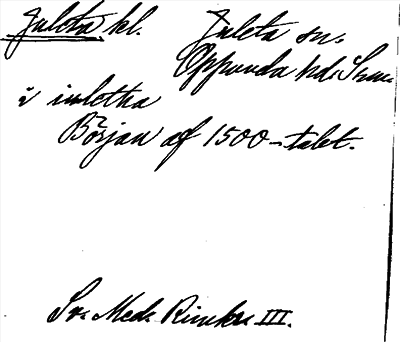 Juleta kl. Juleta sn.
Oppunda hd. Söm.
i Juletha
Början af 1500-talet.
Sv. Med. Rimkr. III.